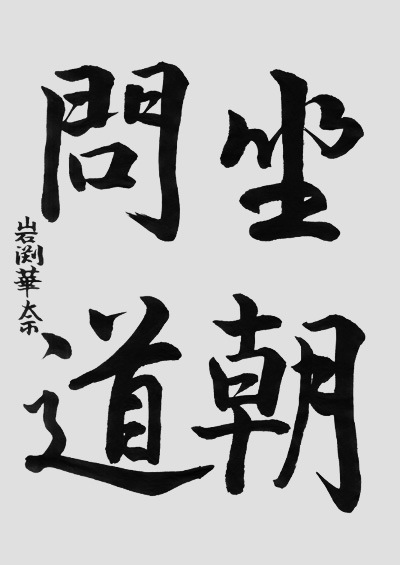 坐朝
問道
岩渕華奈